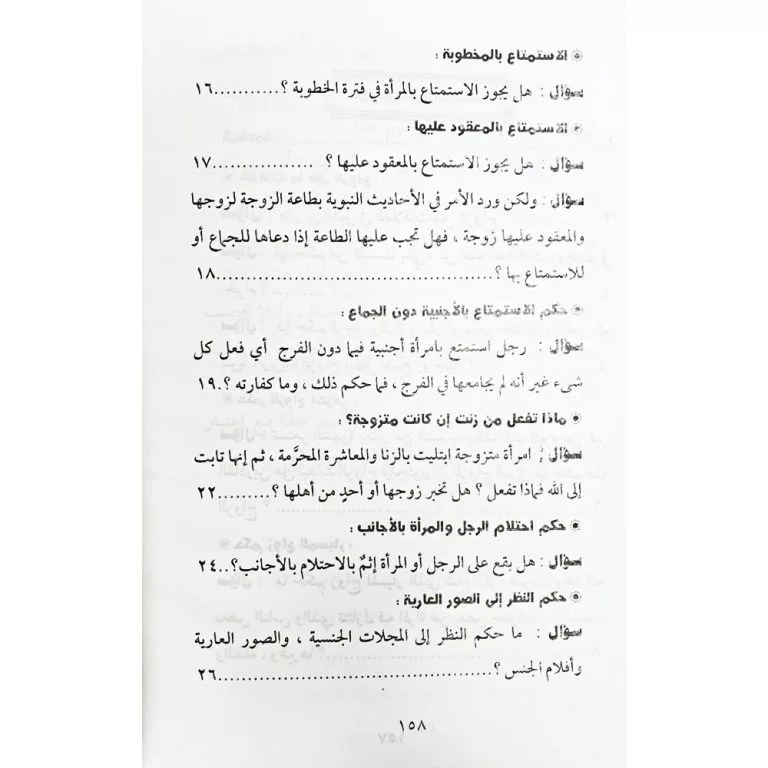 ۞ الاستمتاع بالمخطوبة :
سؤال : هل يجوز الاستمتاع بالمرأة في فترة الخطوبة ؟...........١٦
۞ الاستمتاع بالمعقود عليها :
سؤال : هل يجوز الاستمتاع بالمعقود عليها ؟ ................١٧
سؤال : ولكن ورد الأمر في الأحاديث النبوية بطاعة الزوجة لزوجها
والمعقود عليها زوجة ، فهل تجب عليها الطاعة إذا دعاها للجماع أو
للاستمتاع بها ؟............................................١٨
۞ حكم الاستمتاع بالأجنبية دون الجماع :
سؤال : رجل استمتع بامرأة أجنبية فيما دون الفرج أي فعل كل
شيء غير أنه لم يجامعها في الفرج ، فما حكم ذلك ، وما كفارته ؟.١٩
۞ ماذا تفعل من زنت إن كانت متزوجة؟ :
سؤال : امرأة متزوجة ابتليت بالزنا والمعاشرة المحرَّمة ، ثم إنها تابت
إلى الله فماذا تفعل ؟ هل تخبر زوجها أو أحدٍ من أهلها ؟.........٢٢
۞ حكم احتلام الرجل والمرأة بالأجانب :
سؤال : هل يقع على الرجل أو المرأة إثمٌ بالاحتلام بالأجانب؟..٢٤
۞ حكم النظر إلى الصور العارية :
سؤال : ما حكم النظر إلى المجلات الجنسية ، والصور العارية
وأفلام الجنس ؟............................................٢٦
١٥٨